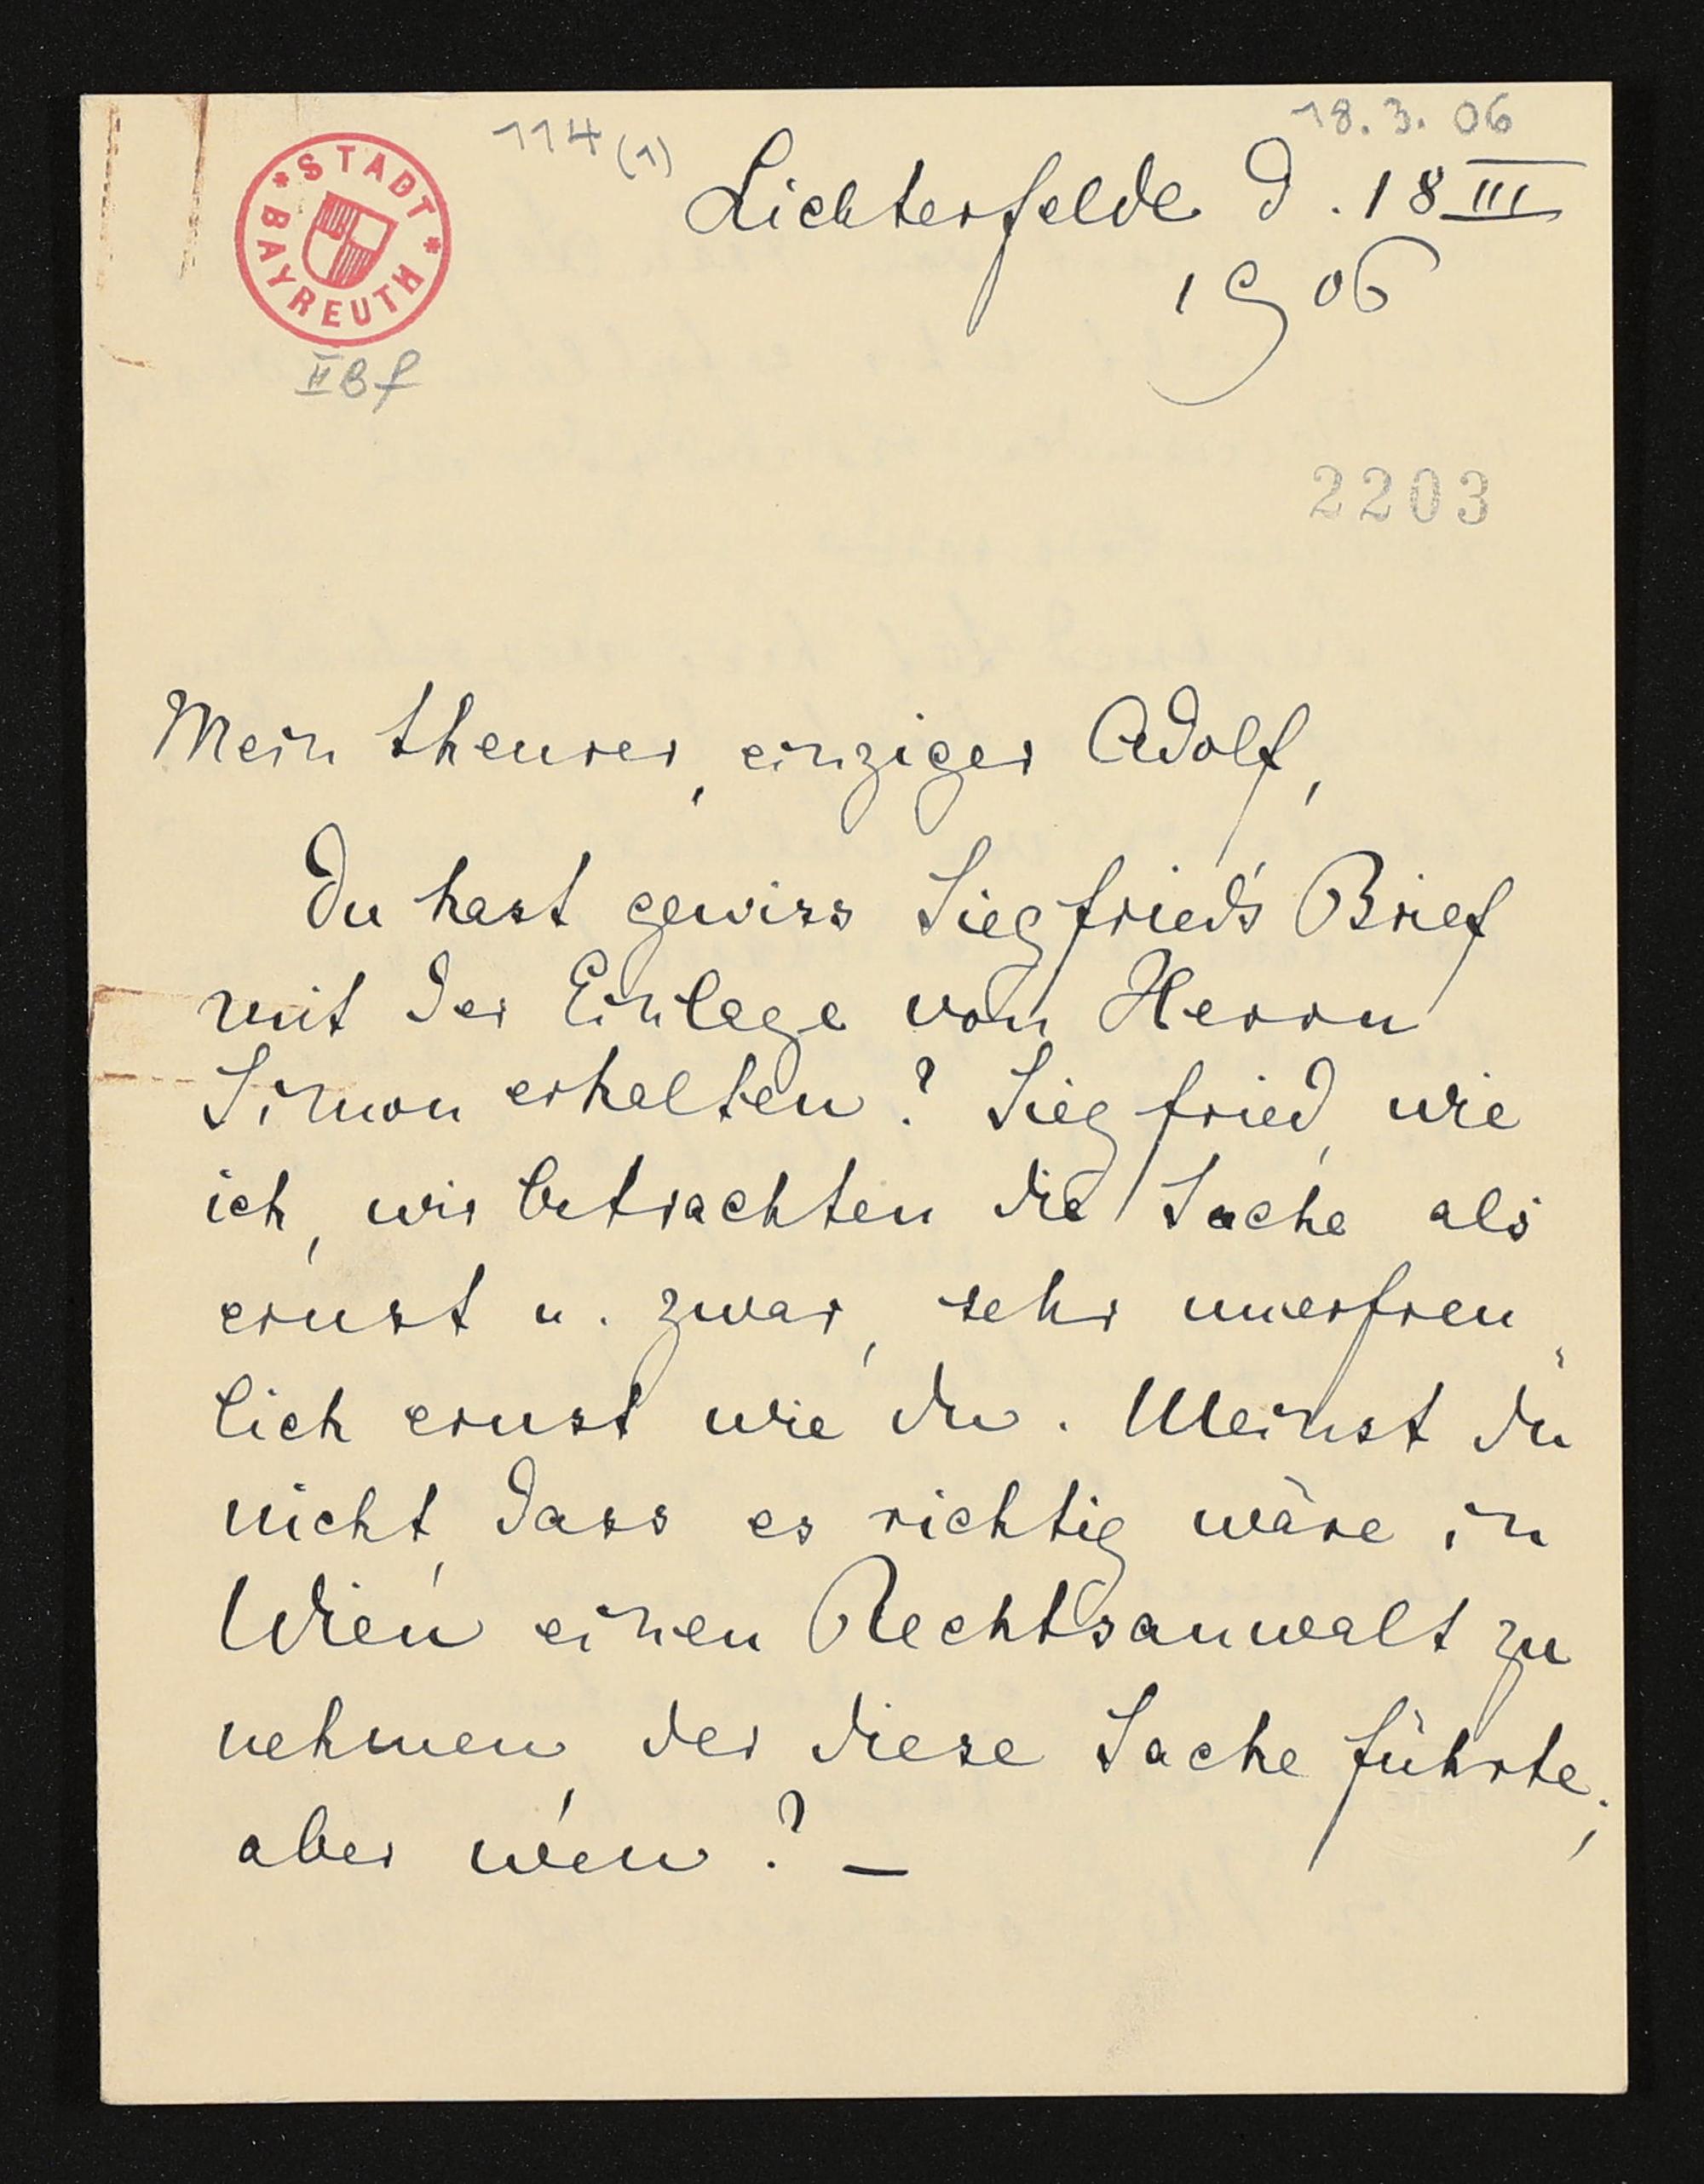 18.3.06
114 (1)
Lichterfelde d. 18 III
1906
* STADT *
BAYREUTH
II B f
2203
Mein theurer, einziger Adolf,
Du hast gewiss Siegfried's Brief
mit der Einlage von Herrn
Simon erhalten? Siegfried, wie
ich, wir betrachten die Sache als
ernst u. zwar, sehr unerfreu„
lich ernst wie du. Meinst du
nicht, dass es richtig wäre in
Wien einen Rechtsanwalt zu
nehmen, der diese Sache führte;
aber wen? —